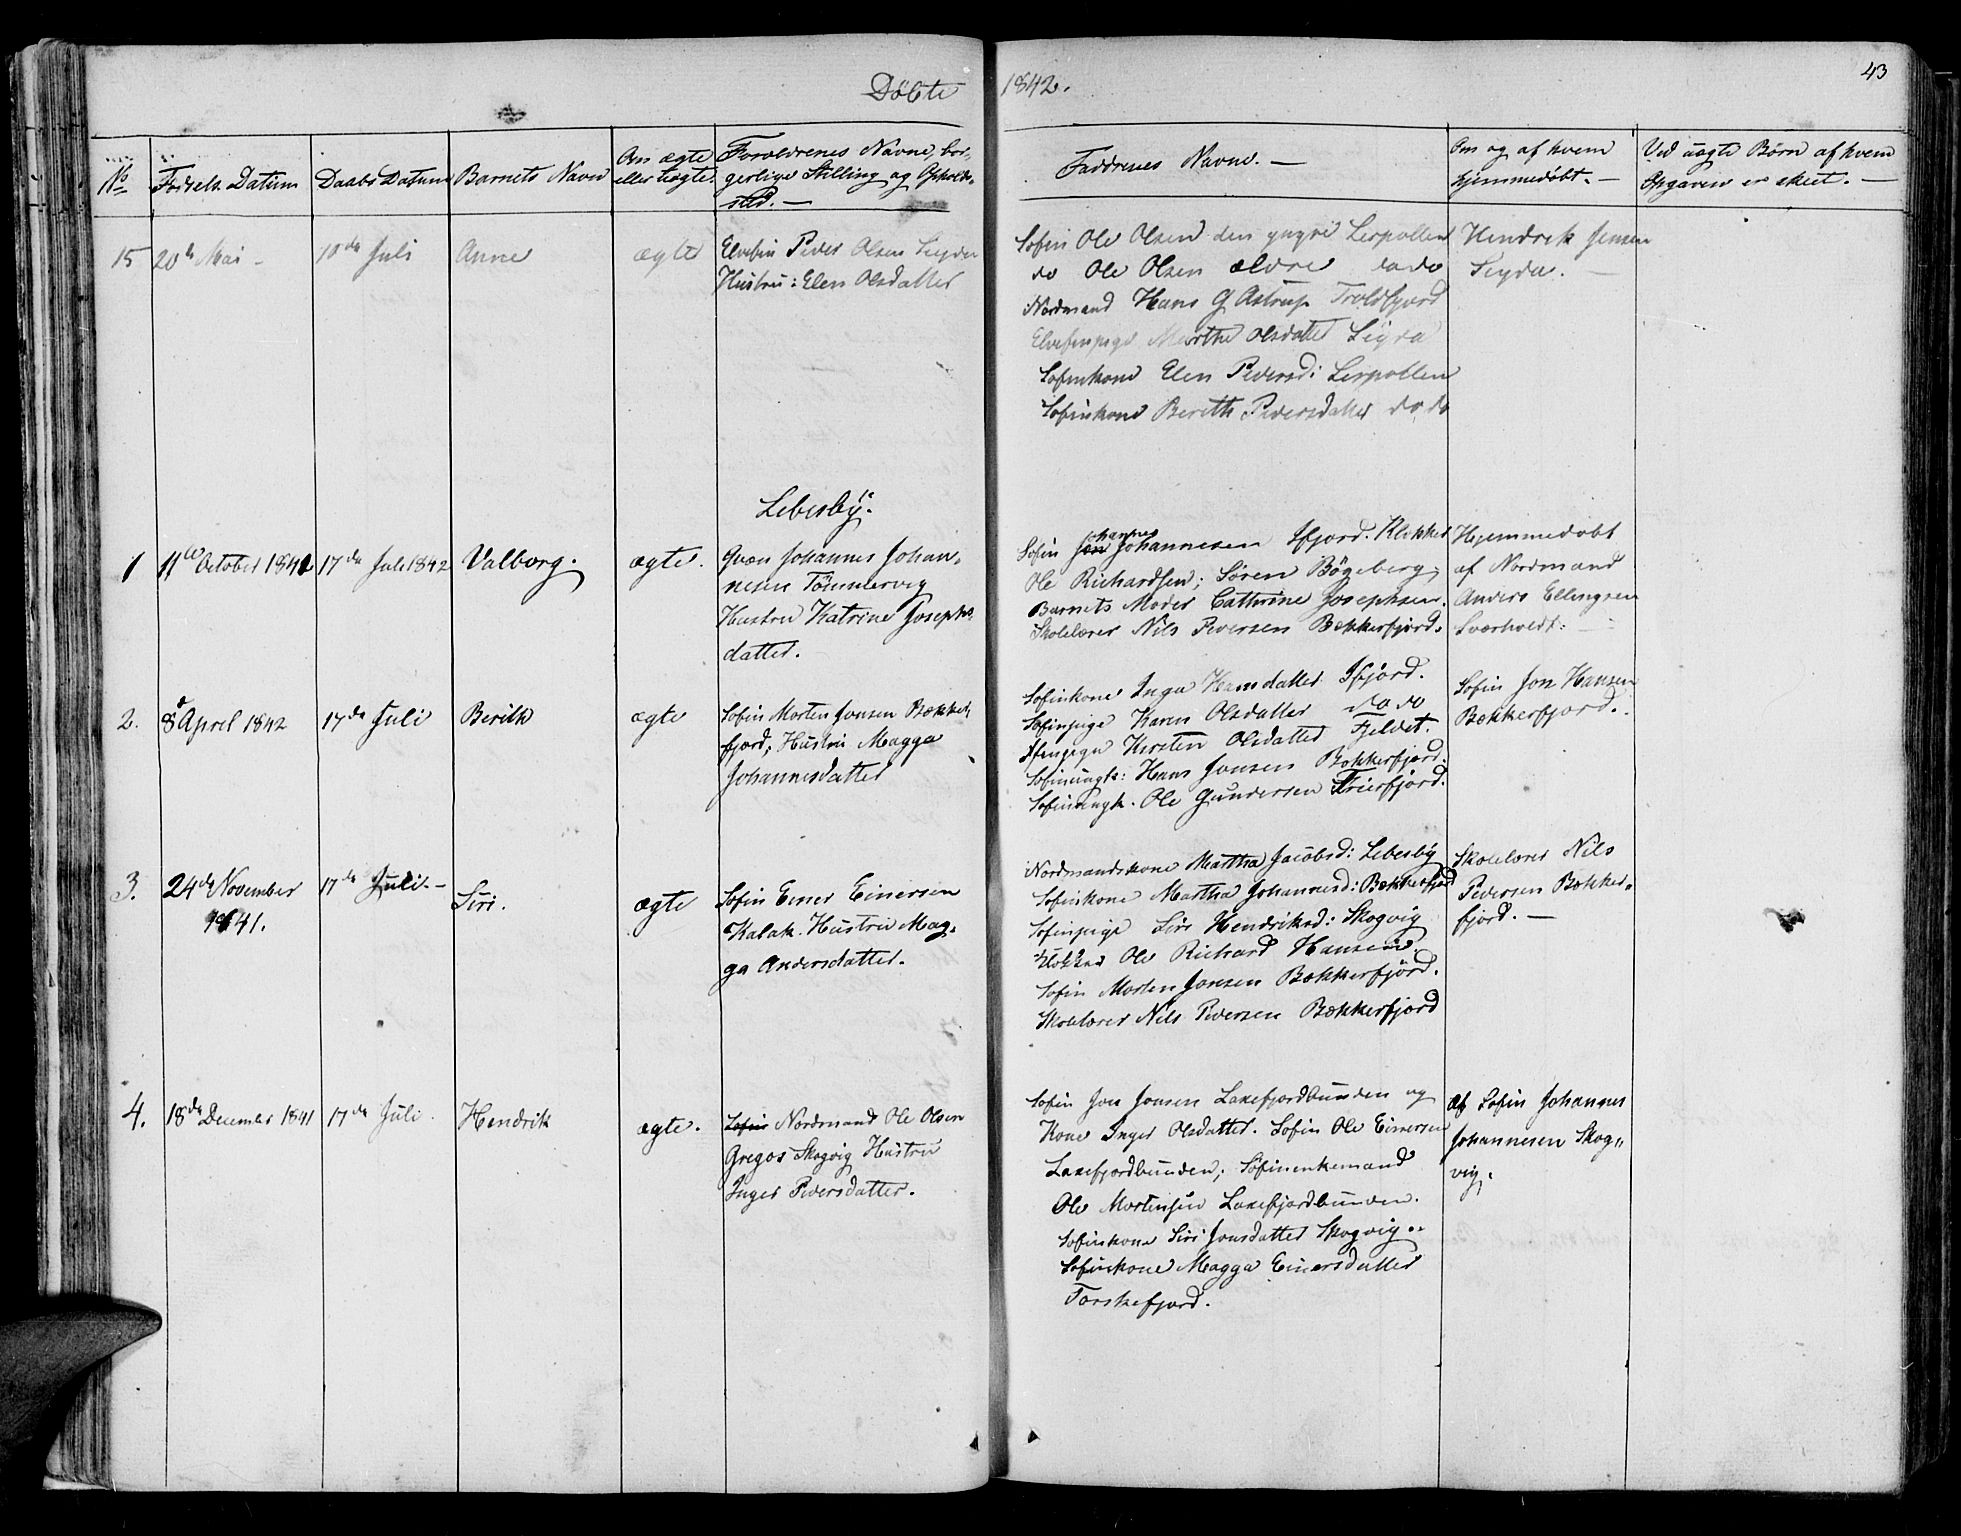 Döbte 1842.
43
No
Fødsels Datum
Daabs Datum
Barnets Navn
Om ægte
eller uægte.
Forældrenes Navne, bor-
gerlige Stilling og Opholds-
sted. —
Faddrenes Navne. —
Om og af hvem
hjemmedöbt. —
Ved uægte Børn af hvem
Opgaven er skeet. —
15
20de Mai -
10de Juli
Anne
ægte
Elvefin Peder Olsen Siyda
Hustru: Elen Olsdatter
Søfin Ole Olsen den yngre Lerpollen
do Ole Olsen ældre do do
Nordmand Hans G Astrup Troldfjord
Elvefinpige Marthe Olsdatter Siyda
Søfinkone Elen Pedersd: Lerpollen
Søfinkone Berith Pedersdatter do do
Hendrik Jensen
Siyda. —
Lebesby.
1
11te October 1841
17de Juli 1842
Valborg.
ægte.
Qvæn Johannes Johan-
nesen Tömmervig
Hustru Katrine Josephs-
datter.
Søfin Johannes Johannesen Ifjord. Klokker
Ole Richardsen; Sören Bögeberg;
Barnets Moder Cathrine Josephsen.
Skolelærer Nils Pedersen Bekkerfjord.
Hjemmedöbt
af Nordmand
Anders Ellingsen
Sværholdt: —
2.
8d April 1842
17de Juli
Berith
ægte
Søfin Morten Jonsen Bekker-
fjord; Hustru Magga
Johannesdatter
Søfinkone Inga Hansdatter Ifjord.
Søfinpige Karen Olsdatter do do
Kirsten Olsdatter Fjeldet.
Søfinungk: Hans Jonsen Bekkerfjord.
Søfinungk. Ole Gundersen Frierfjord.
Søfin Jon Hansen
Bekkerfjord.
3.
24de November
1841.
17de Juli. -
Siri.
ægte
Søfin Einer Einersen
Kalak. Hustru Mag-
ga Andersdatter.
Nordmandskone Martha Jacobsd: Lebesby
Søfinkone Martha Johannesd: Bekkerfjord
Søfinpige Siri Hendriksd: Skogvig
Klokker Ole Richard Hansen.
Søfin Morten Jonsen Bekkerfjord.
Skolelærer Nils Pedersen Bekkerfjord
Skolelærer Nils
Pedersen Bekker-
fjord. —
4.
18de December 1841
17de Juli.
Hendrik
ægte.
Søfin Nordmand Ole Olsen
Gregos Skogvig Hustru
Inger Pedersdatter.
Søfin Jon Jonsen Laxefjordbunden og
Kone Inger Olsdatter. Søfin Ole Einersen
Laxefjordbunden; Söfinenkemand
Ole Mortensen Laxefjordbunden.
Søfinkone Siri Jonsdatter Skogvig..
Søfinkone Magga Einersdatter
Torskefjord.
af Søfin Johannes
Johannesen Skog-
vig.